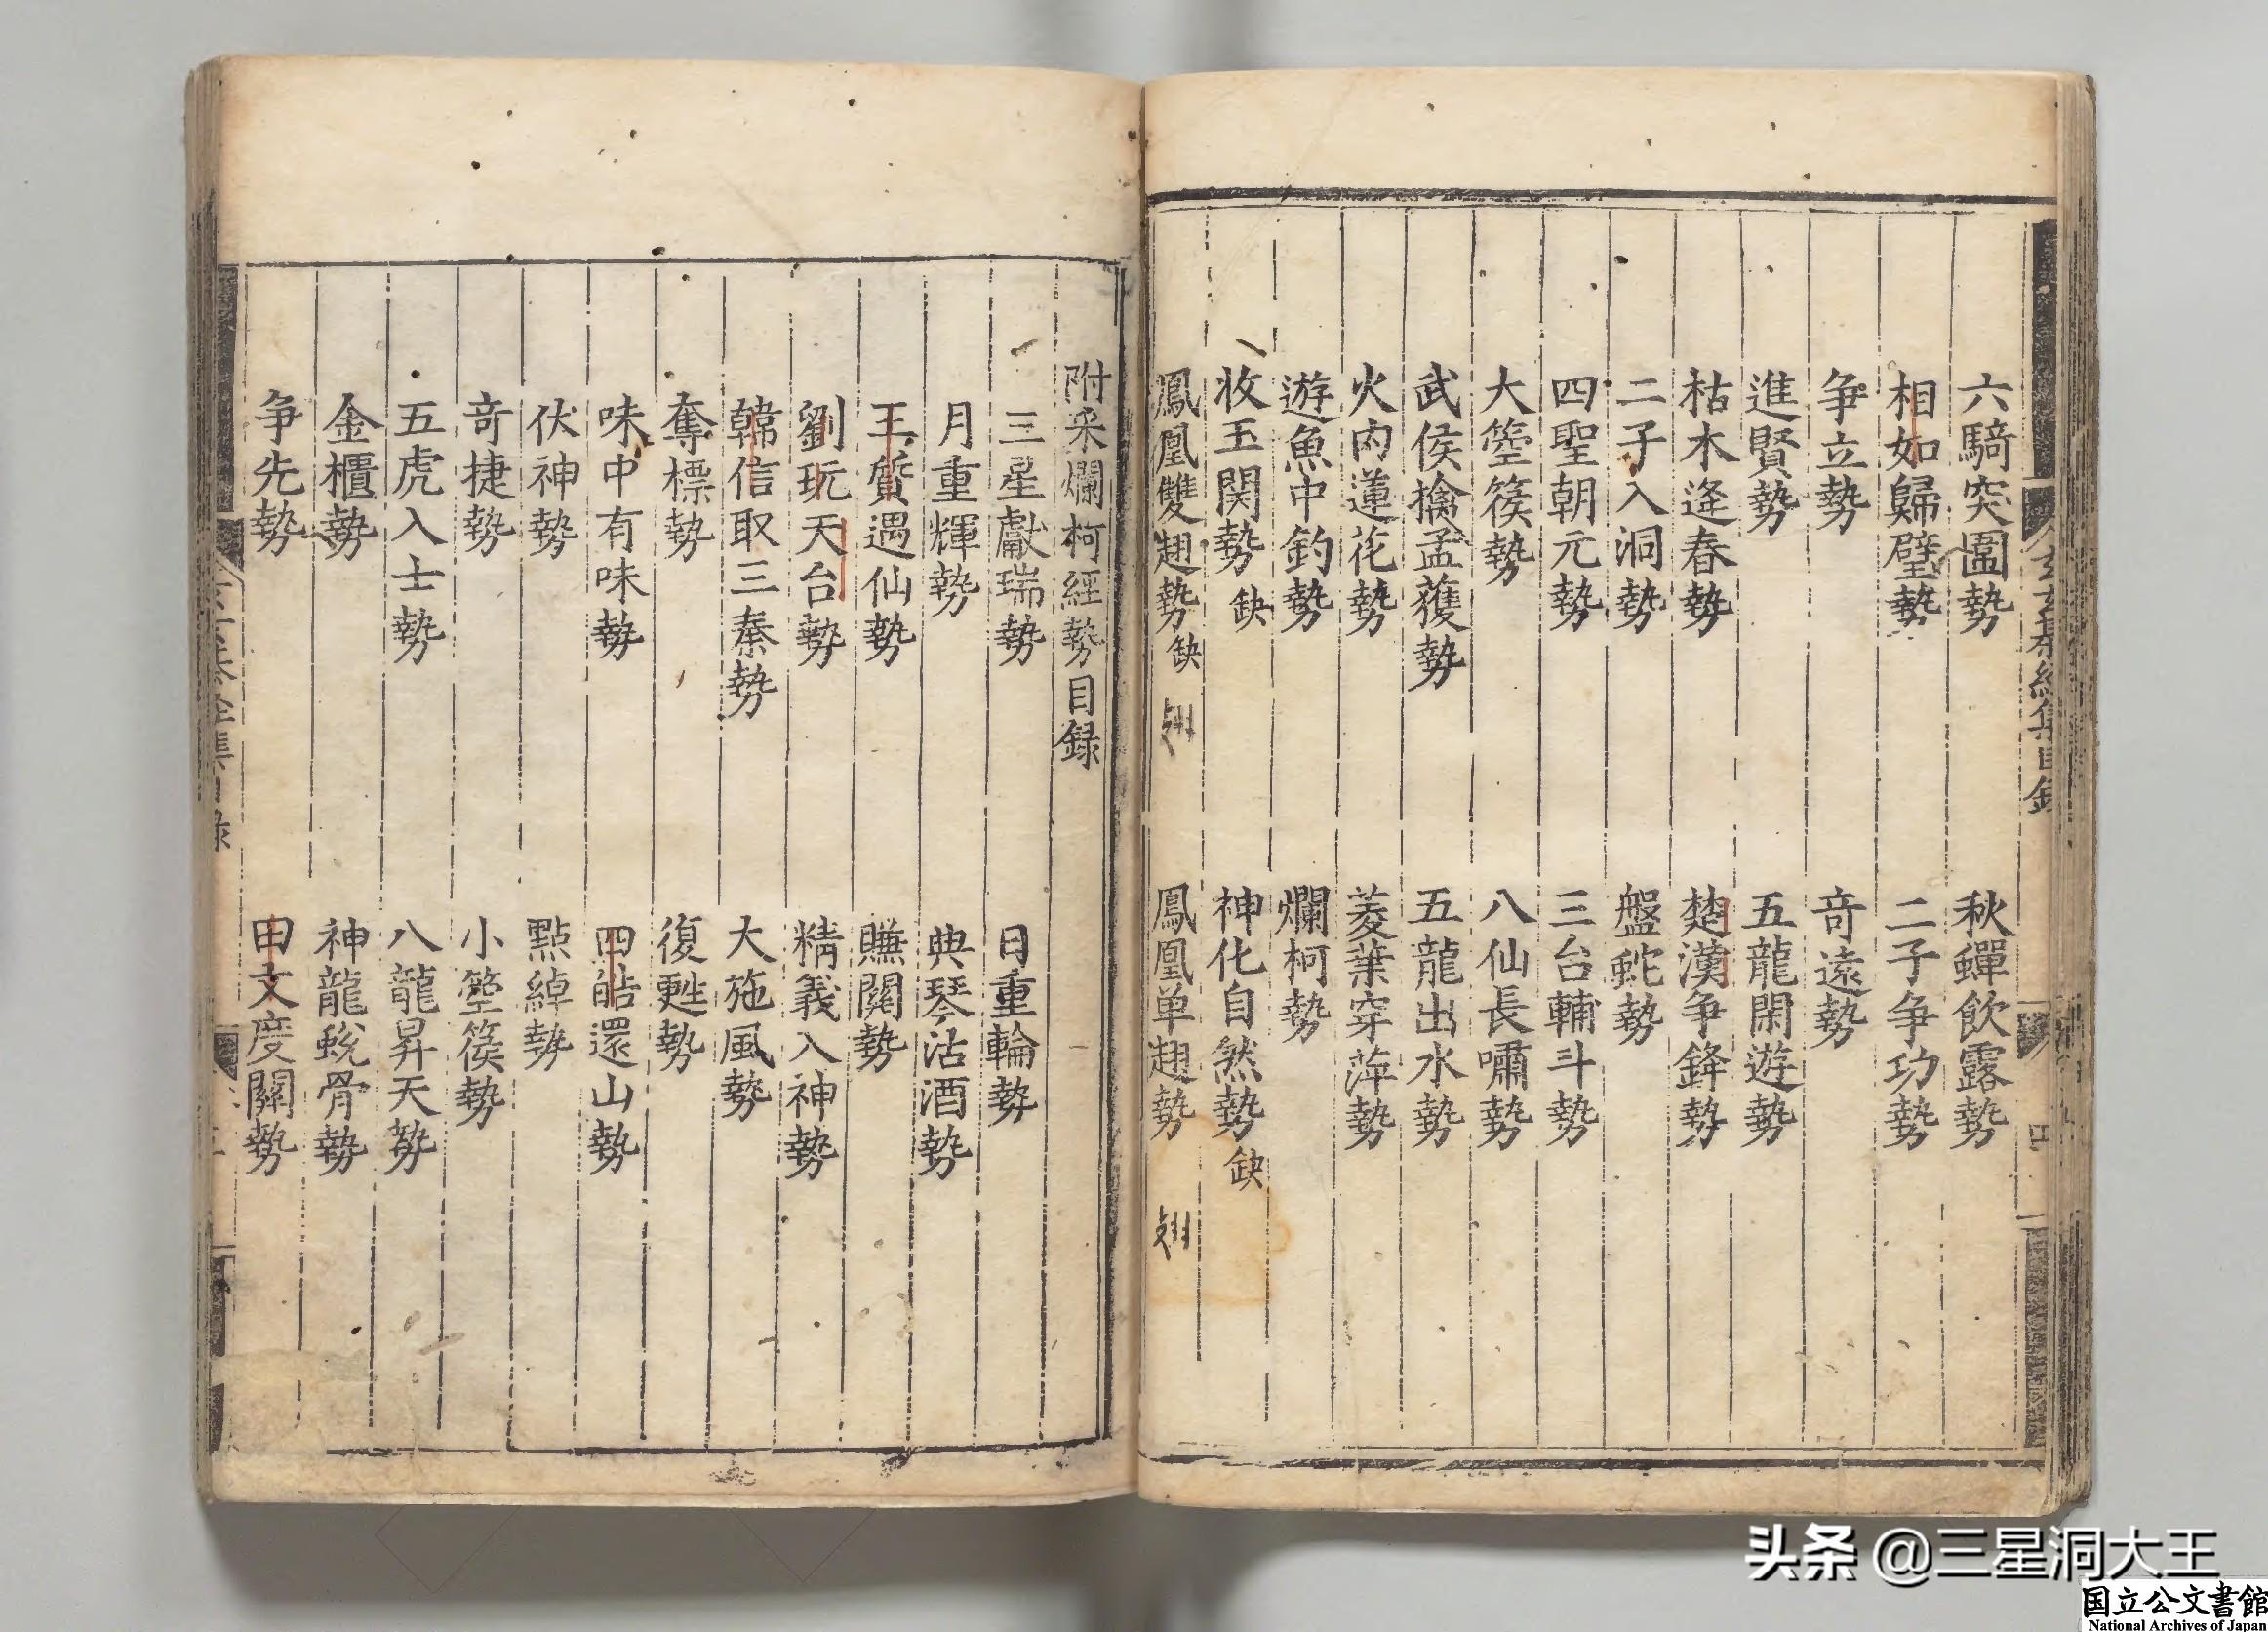 六騎突圍勢　秋蟬飲露勢
相如歸璧勢　二子争功勢
争立勢　竒遠勢
進賢勢　五龍閑遊勢
枯木逢春勢　楚漢争鋒勢
二子入洞勢　盤蛇勢
四聖朝元勢　三台輔斗勢
大箜篌勢　八仙長嘯勢
武侯擒孟獲勢　五龍出水勢
火内蓮花勢　菱葉穿萍勢
遊魚中釣勢　爛柯勢
收玉関勢 缺　神化自然勢 缺
鳳凰雙翅勢 缺　鳳凰单翅勢
附采爛柯經勢目録
三星獻瑞勢　日重輪勢
月重輝勢　典琴沽酒勢
王質遇仙勢　賺関勢
劉玩天台勢　精義入神勢
韓信取三秦勢　大施風勢
奪標勢　復甦勢
味中有味勢　四皓還山勢
伏神勢　點綽勢
竒捷勢　小箜篌勢
五虎入士勢　八龍昇天勢
金櫃勢　神龍蛻骨勢
争先勢　田文度關勢
头条 @三星洞大王
国立公文書館
National Archives of Japan